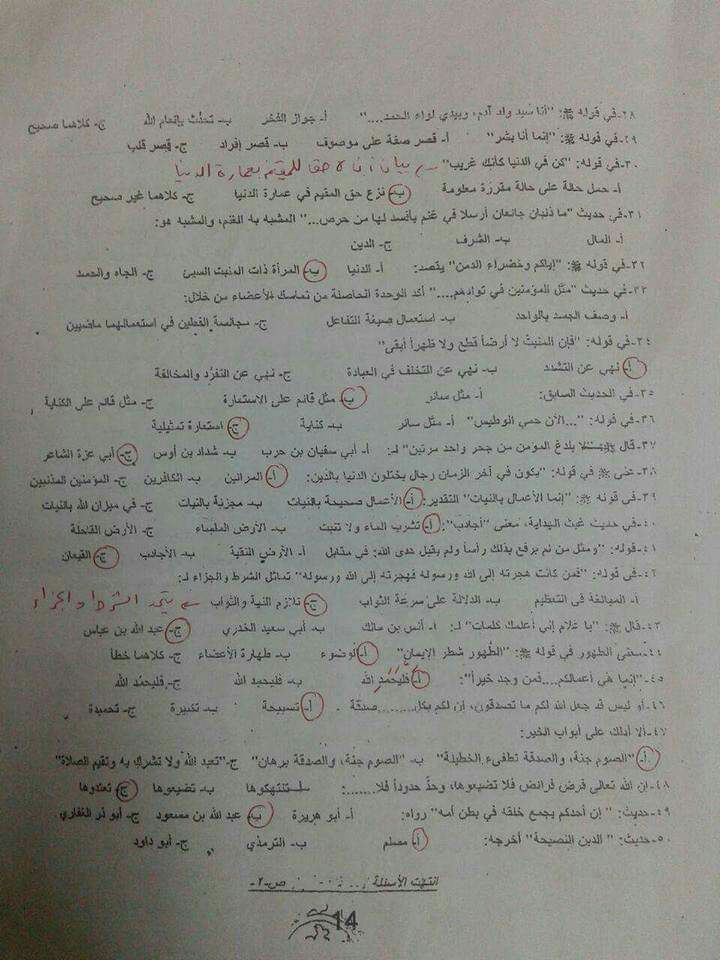 ٢٨-في قوله ﷺ: "أنا سيد ولد آدم، وبيدي لواء الحمد...." أ- جواز الفخر ب- تحدث بإنعام الله ج- كلاهما صحيح
٢٩-في قوله ﷺ: "إنما أنا بشر" أ- قصر صفة على موصوف ب- قصر إفراد ج- قصر قلب
٣٠-في قوله: "كن في الدنيا كأنك غريب" بعمارة الدنيا
أ- حمل حالة على حالة مقررة معلومة ب- نزع حق المقيم في عمارة الدنيا ج- كلاهما غير صحيح
٣١-في حديث "ما ذئبان جائعان أرسلا في غنم بأفسد لها من حرص..." المشبه به الغنم، والمشبه هو:
أ- المال ب- الشرف ج- الدين
٣٢-في قوله ﷺ: "إياكم وخضراء الدمن" يقصد: أ- الدنيا ب- المرأة ذات المنبت السيئ ج- الجاه والحسد
٣٣-في حديث "مثل المؤمنين في توادهم...." أكد الوحدة الحاصلة من تماسك الأعضاء من خلال:
أ- وصف الجسد بالواحد ب- استعمال صيغة التفاعل ج- مجالسة الفعلين في استعمالهما ماضيين
٣٤-في قوله: "فإن المنبت لا أرضاً قطع ولا ظهراً أبقى"
أ- نهي عن التشدد ب- نهي عن التخلف في العبادة ج- نهي عن التفرد والمخالفة
٣٥-في الحديث السابق: أ- مثل سائر ب- مثل قائم على الاستعارة ج- مثل قائم على الكناية
٣٦-في قوله: "...الآن حمي الوطيس" أ- مثل سائر ب- كناية ج- استعارة تمثيلية
٣٧-قال ﷺ "لا يلدغ المؤمن من جحر واحد مرتين" لـ: أ- أبي سفيان بن حرب ب- شداد بن أوس ج- أبي عزة الشاعر
٣٨-عنى ﷺ في قوله: "يكون في آخر الزمان رجال يختلون الدنيا بالدين: أ- المرائين ب- الكافرين ج- المؤمنين المذنبين
٣٩-في قوله ﷺ: "إنما الأعمال بالنيات" التقدير: أ- الأعمال صحيحة بالنيات ب- مجزية بالنيات ج- في ميزان الله بالنيات
٤٠-في حديث غيث الهداية، معنى "أجادب": أ- تشرب الماء ولا تنبت ب- الأرض الملساء ج- الأرض القاحلة
٤١-قوله: "ومثل من لم يرفع بذلك رأساً ولم يقبل هدى الله: في مقابل أ- الأرض النقية ب- الأجادب ج- القيعان
٤٢-في قوله: "فمن كانت هجرته إلى الله ورسوله فهجرته إلى الله ورسوله" تماثل الشرط والجزاء لـ:
أ- المبالغة في التعظيم ب- الدلالة على سرعة الثواب ج- تلازم النية والثواب يتحد الشرط والجزاء
٤٣-قال ﷺ: "يا غلام إني أعلمك كلمات" لـ: أ- أنس بن مالك ب- أبي سعيد الخدري ج- عبد الله بن عباس
٤٤-معنى الطهور في قوله ﷺ: "الطهور شطر الإيمان" أ- الوضوء ب- طهارة الأعضاء ج- كلاهما خطأ
٤٥-"إنما هي أعمالكم....فمن وجد خيراً": أ- فليحمد الله ب- فليحمد الله ج- فليحمد الله
٤٦-أو ليس قد جعل الله لكم ما تصدقون، إن لكم بكل........صدقة أ- تسبيحة ب- تكبيرة ج- تحميدة
٤٧-ألا أدلك على أبواب الخير:
أ- "الصوم جنة، والصدقة تطفئ الخطيئة" ب- "الصوم جنة، والصدقة برهان" ج- "تعبد الله ولا تشرك به وتقيم الصلاة"
٤٨-إن الله تعالى فرض فرائض فلا تضيعوها، وحد حدوداً فلا.......: أ- تنتهكوها ب- تضيعوها ج- تعتدوها
٤٩-حديث: "إن أحدكم يجمع خلقه في بطن أمه" رواه: أ- أبو هريرة ب- عبد الله بن مسعود ج- أبو ذر الغفاري
٥٠-حديث: "الدين النصيحة" أخرجه: أ- مسلم ب- الترمذي ج- أبو داود
انتهت الأسئلة ص-٢-
14